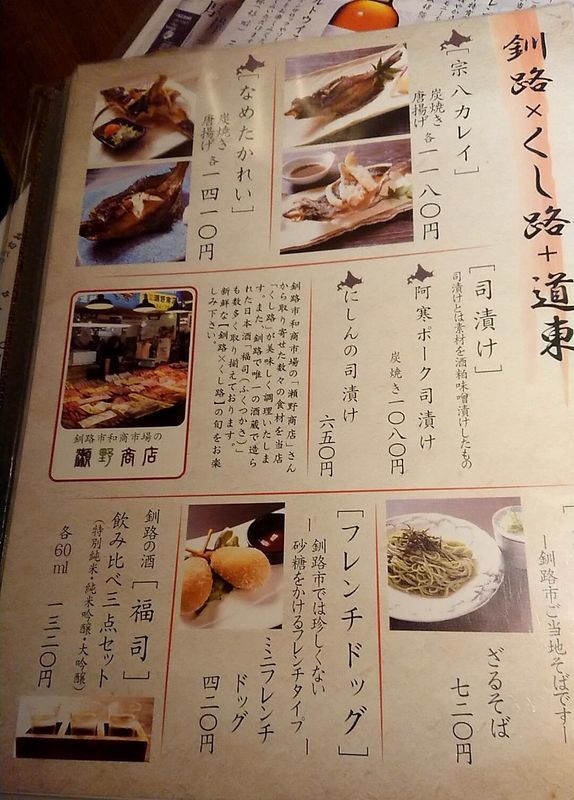 釧路×くし路+道東
[宗八カレイ]
炭焼き
唐揚げ 各一一八〇円
[なめたかれい]
炭焼き
唐揚げ 各一四一〇円
[司漬け]
司漬けとは素材を酒粕味噌漬けしたもの
阿寒ポーク司漬け
炭焼き二〇八〇円
にしんの司漬け
六五〇円
釧路市和商市場の「瀬野商店」さん
から取り寄せた数々の食材を当店
「くし路」が美味しく調理いたしま
す。また、釧路で唯一の酒蔵で造ら
れた日本酒「福司(ふくつかさ)」
も数多く取り揃えております。
新鮮な【釧路×くし路】の旬をお楽
しみ下さい。
釧路市和商市場の
瀬野商店
―釧路市ご当地そばです―
ざるそば
七二〇円
[フレンチドッグ]
―釧路市では珍しくない
砂糖をかけるフレンチタイプ―
ミニフレンチ
ドッグ
四二〇円
釧路の酒[福司]
飲み比べ三点セット
(特別純米・純米吟醸・大吟醸)
各60ml 一三二〇円